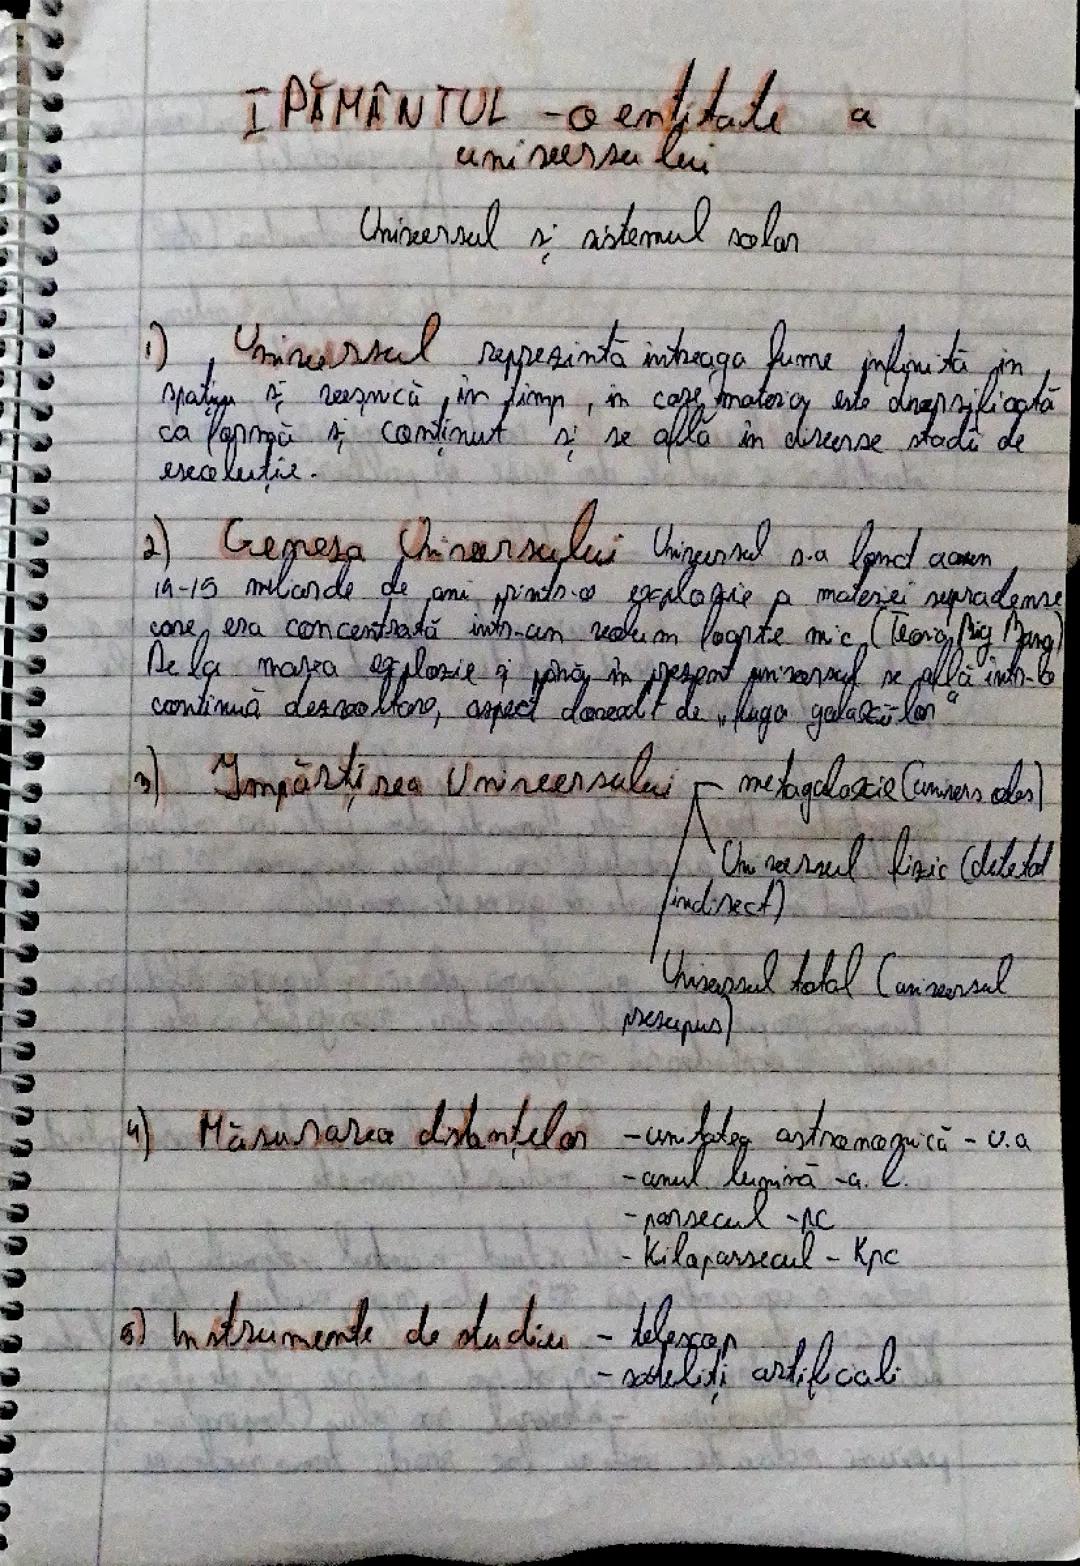 I PĂMÂNTUL - o entitate a
universului
Universul și sistemul solar
1) Universul reprezintă întreaga lume infinită în
spațiu și veșnică în timp, în care materia este diversificată
ca formă și conținut și se află în diverse stadii de
evoluție.
2) Geneza Universului Universul s-a format acum
14-15 miliarde de ani printr-o explozie a materiei supradense
care era concentrată într-un volum foarte mic (Teoria Big Bang)
De la marea explozie și până în prezent universul se află într-o
continuă dezvoltare, aspect dovedit de „fuga galaxiilor"
3) Împărțirea Universului - metagalaxie (univers obs)
Universul fizic (detectat
indirect)
Universul total (universul
presupus)
4) Măsurarea distanțelor - unitatea astronomică - u.a
- anul lumină - a.l.
- parsecul - pc
- Kiloparsecul - Kpc
5) Instrumente de studiu - telescop
- sateliți artificiali